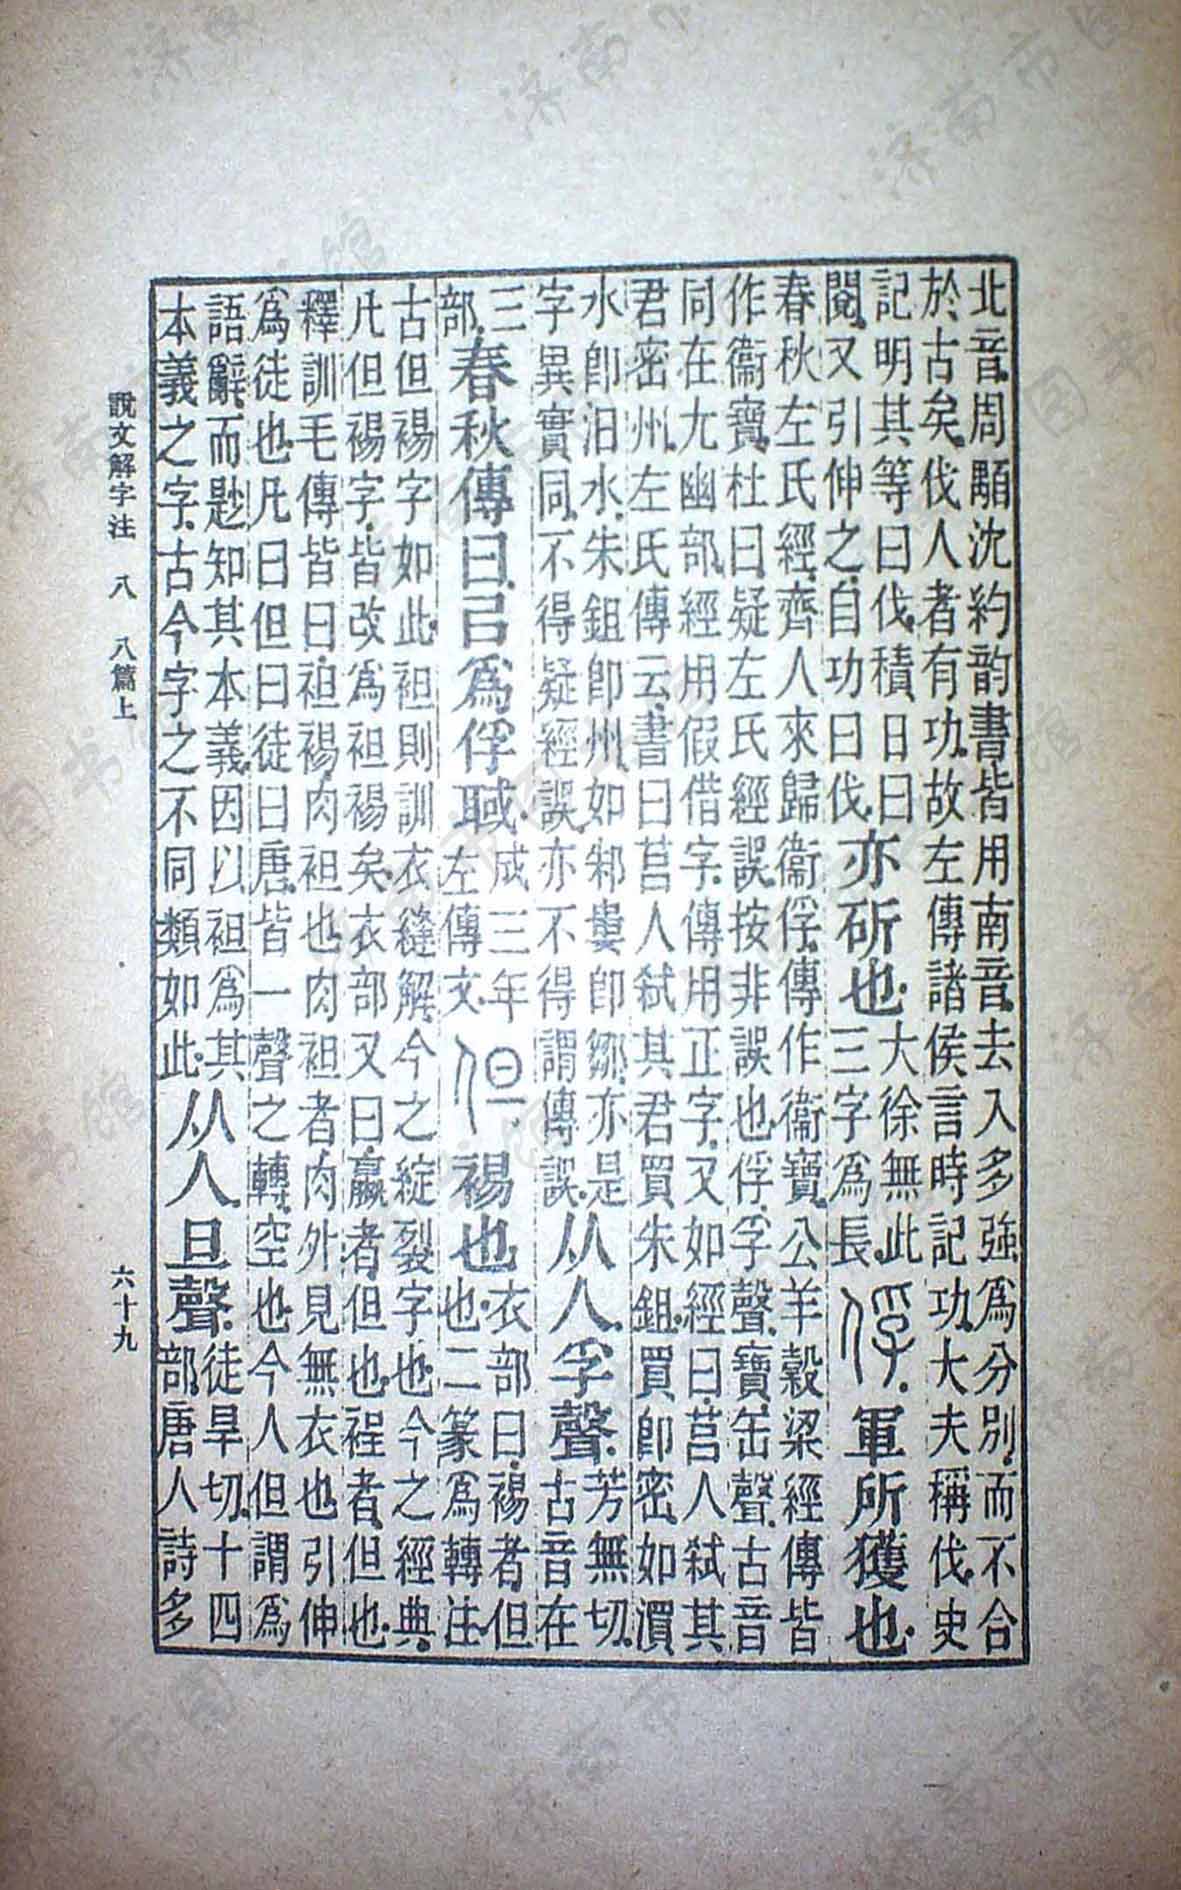 北音。周顒沈約韵書皆用南音。去入多強爲分別。而不合
於古矣。伐人者有功。故左傳諸侯言時記功。大夫稱伐。史
記明其等曰伐。積日曰
閱。又引伸之。自功曰伐。
亦斫也。
大徐無此
三字爲長
俘。軍所獲也。
春秋左氏經。齊人來歸衞俘。傳作衞寶。公羊穀梁經傳皆
作衞寶。杜曰。疑左氏經誤。按非誤也。俘。孚聲。寶。缶聲。古音
同在尤幽部。經用假借字。傳用正字。又如經曰。莒人弑其
君密州。左氏傳云。書曰莒人弑其君買朱鉏。買卽密。如湏
水卽汨水。朱鉏卽州。如邾婁卽鄒。亦是
字異實同。不得疑經誤。亦不得謂傳誤。
从人。孚聲。
芳無切。
古音在
三
部。
春秋傳曰。㠯爲俘聝。
成三年
左傳文。
但。裼也。
衣部曰。裼者。但
也。二篆爲轉注。
古但裼字如此。袒則訓衣縫解。今之綻裂字也。今之經典。
凡但裼字。皆改爲袒裼矣。衣部又曰。臝者。但也。裎者。但也。
釋訓毛傳皆曰。袒裼。肉袒也。肉袒者。肉外見無衣也。引伸
爲徒也。凡曰但曰徒曰唐。皆一聲之轉。空也。今人但謂爲
語辭。而尟知其本義。因以袒爲其
本義之字。古今字之不同類如此。
从人。旦聲。
徒旱切。十四
部。唐人詩多
說文解字注 八 八篇上
六十九
济南市图书馆